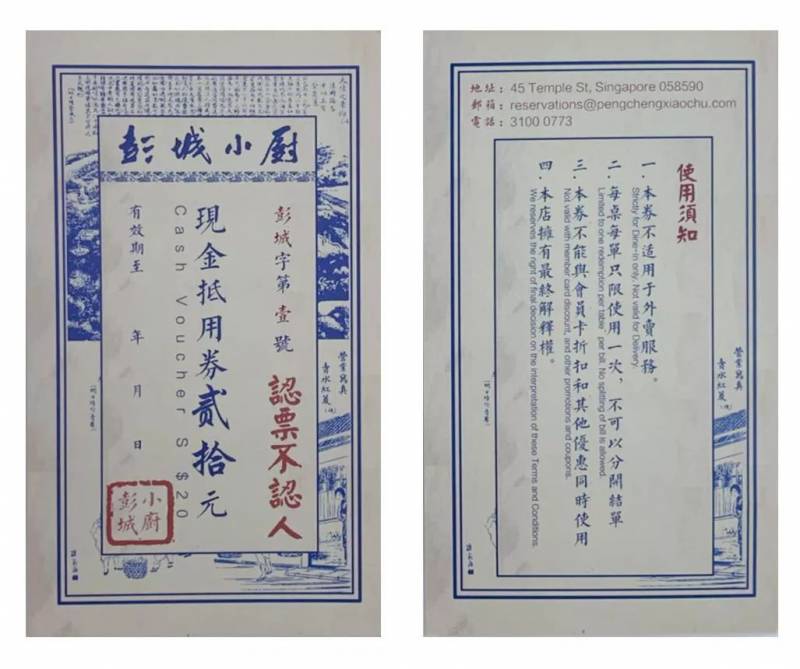 彭城小厨
彭城字第壹號
認票不認人
現金抵用券贰拾元
Cash Voucher S $20
有效期至 年 月 日
小廚
彭城
營業寫真
青水紅菱
地址：45 Temple St, Singapore 058590
郵箱：reservations@pengchengxiaochu.com
電話：3100 0773
使用須知
一．本券不适用于外賣服務。
Strictly for Dine-In only. Not valid for Delivery.
二．每桌每單只限使用一次，不可以分開結單
Limited to one redemption per table, per bill. No splitting of bill is allowed.
三．本券不能與會員卡折扣和其他優惠同時使用
Not valid with member card discount, and other promotions and coupons.
四．本店擁有最終解釋權。
We reserves the right of final decision on the interpretation of these Terms and Conditions.
營業寫真
青水紅菱